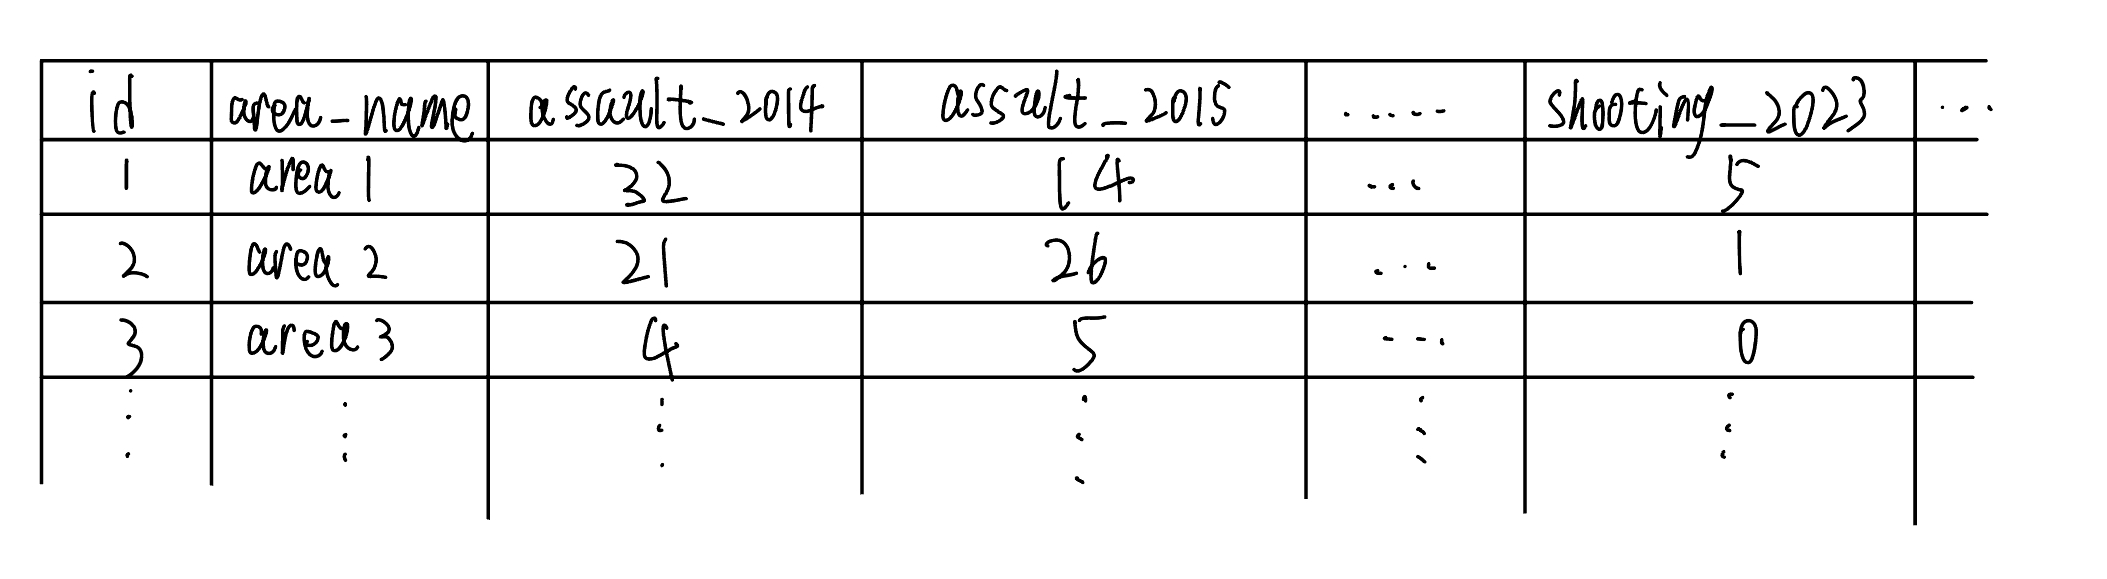 id area_name assault_2014 assult_2015 ..... shooting_2023 ...
1 area 1 32 14 ... 5
2 area 2 21 26 ... 1
3 area 3 4 5 ... 0
⋮ ⋮ ⋮ ⋮ ⋮ ⋮